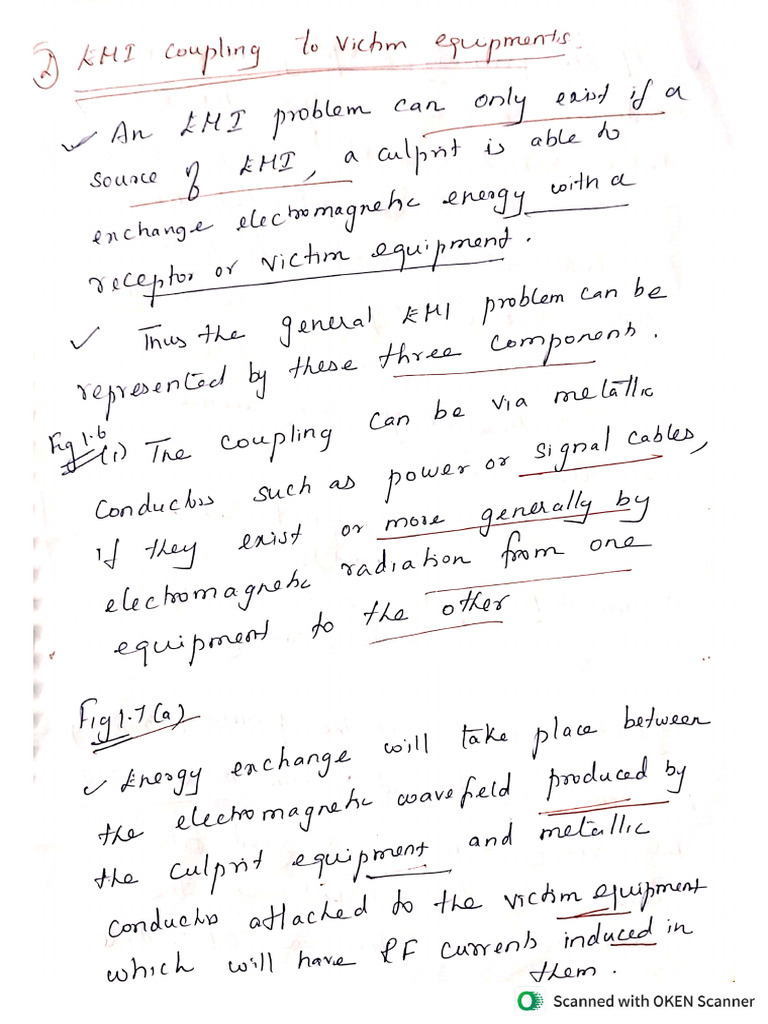 2) EMI coupling to victim equipments.
✓ An EMI problem can only exist if a
source of EMI, a culprit is able to
exchange electromagnetic energy with a
receptor or victim equipment.
✓ Thus the general EMI problem can be
represented by these three components.
Fig 1.6
(i) The coupling can be via metallic
conductors such as power or signal cables,
if they exist or more generally by
electromagnetic radiation from one
equipment to the other
Fig 1.7(a)
✓ Energy exchange will take place between
the electromagnetic wavefield produced by
the culprit equipment and metallic
conductors attached to the victim equipment
which will have RF currents induced in
them.
Scanned with OKEN Scanner